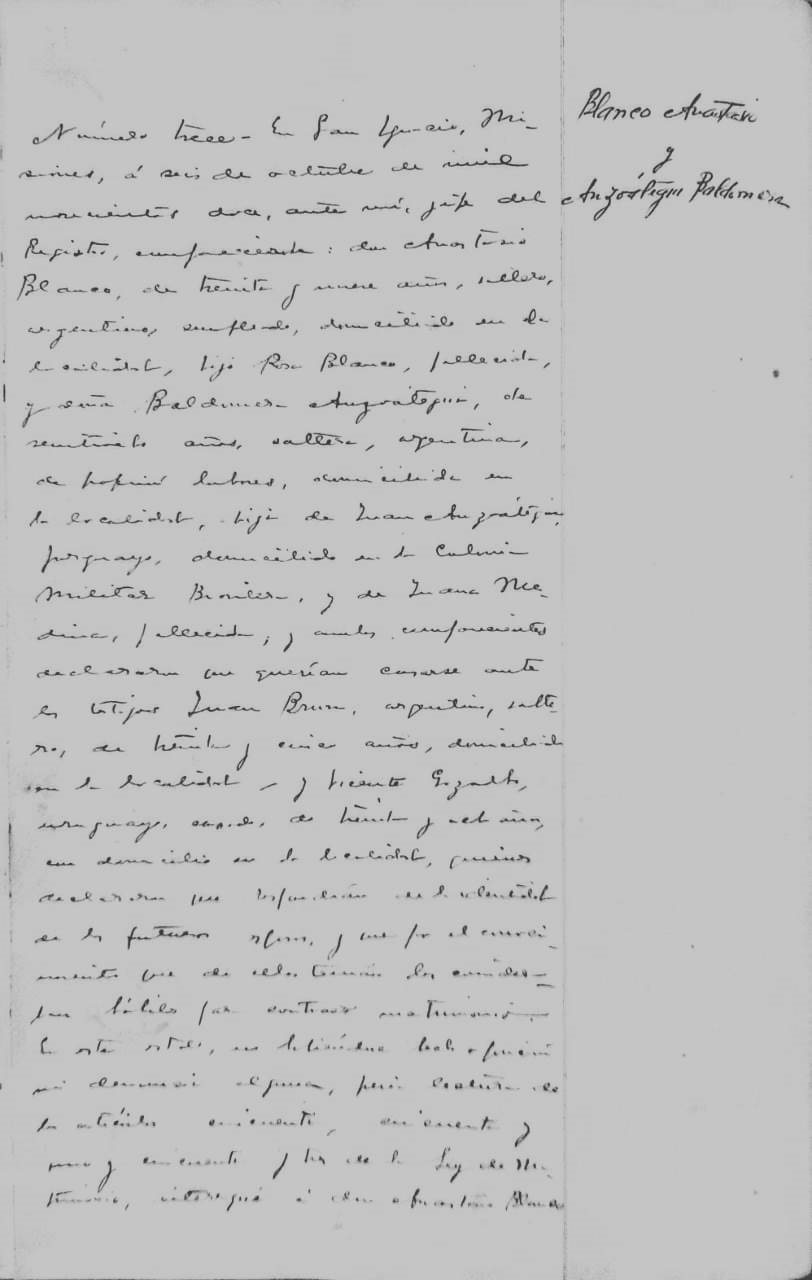 Número trece - En San Ignacio, Mi-
siones, á seis de octubre de mil
novecientos doce, ante mí, jefe del
Registro, comparecieron: don Anastasio
Blanco, de treinta y nueve años, soltero,
argentino, empleado, domiciliado en la
localidad, hijo Rosa Blanco, fallecida,
y doña Baldomera Anzoátegui, de
años, soltera, argentina,
de labores, domiciliada en
la localidad, hija de Juan Anzoátegui,
domiciliado en la Colonia
Militar Brasilera, y de Juana Me-
dina, fallecida; y ambos comparecientes
declararon que querían casarse ante
los testigos Juan Brun, argentino, solte-
ro, de treinta y cinco años, domiciliado
en la localidad - y Vicente
uruguayo, casado, de treinta y ocho años,
con domicilio en la localidad, quienes
declararon que respondían de la identidad
de los futuros esposos, y que por el conoci-
miento que de ellos tenían los conside-
ran hábiles para contraer matrimonio.
En este estado, no habiéndose hecho oposición
ni denuncia alguna, previa lectura de
los artículos cincuenta, cincuenta y
uno y cincuenta y tres de la Ley de Ma-
trimonio, interrogué á don Anastasio Blanco
Blanco Anastasio
y
Anzoátegui Baldomera